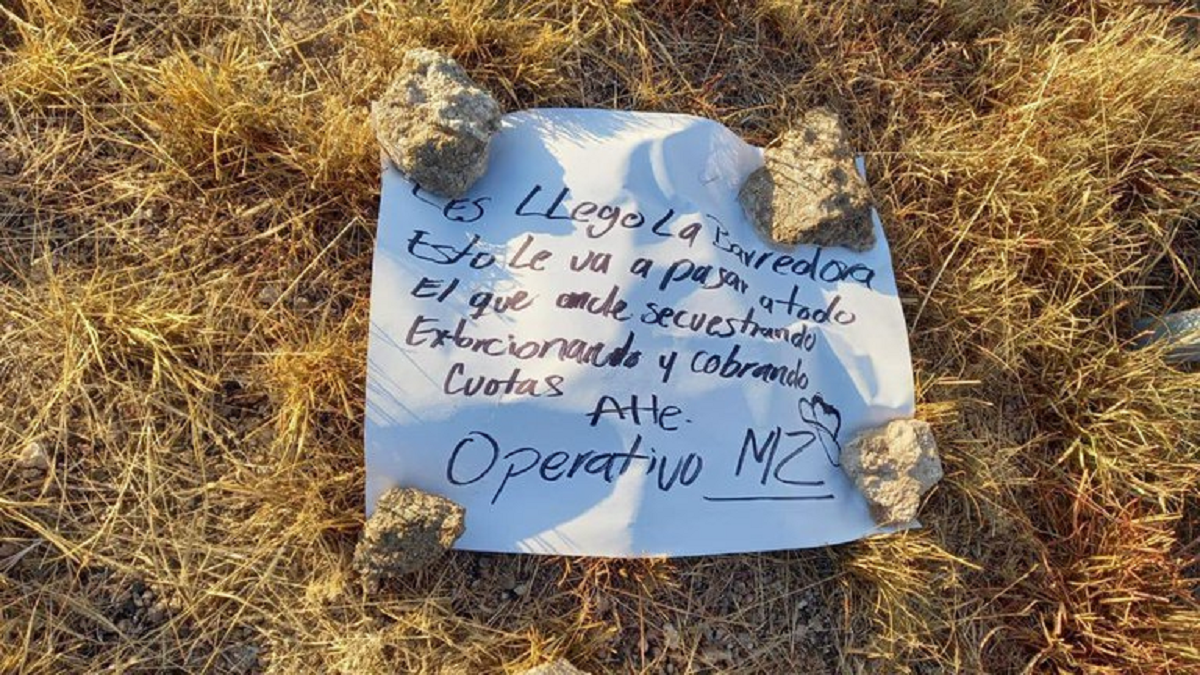 Les LLego La Barredora
Esto Le va a pasar a todo
El que ande secuestrando
Extorcionando y cobrando
Cuotas
Atte.
Operativo MZ